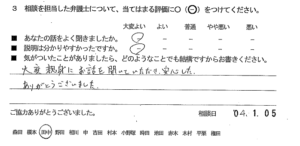 3 相談を担当した弁護士について、当てはまる評価に○(⊖)をつけてください。
大変よい よい 普通 やや悪い 悪い
■ あなたの話をよく聞きましたか。
■ 説明は分かりやすかったですか。
■ 気がついたことがありましたら、どのようなことでも結構ですからお書きください。
大変親身にお話を聞いていただき、安心した。
ありがとうございました。
ご協力ありがとうございました。 相談日 '04. 1. 05
森田 橋本 田中 野田 申 吉田 村本 小野寺 時田 池田 赤木 水村 平泉 横田